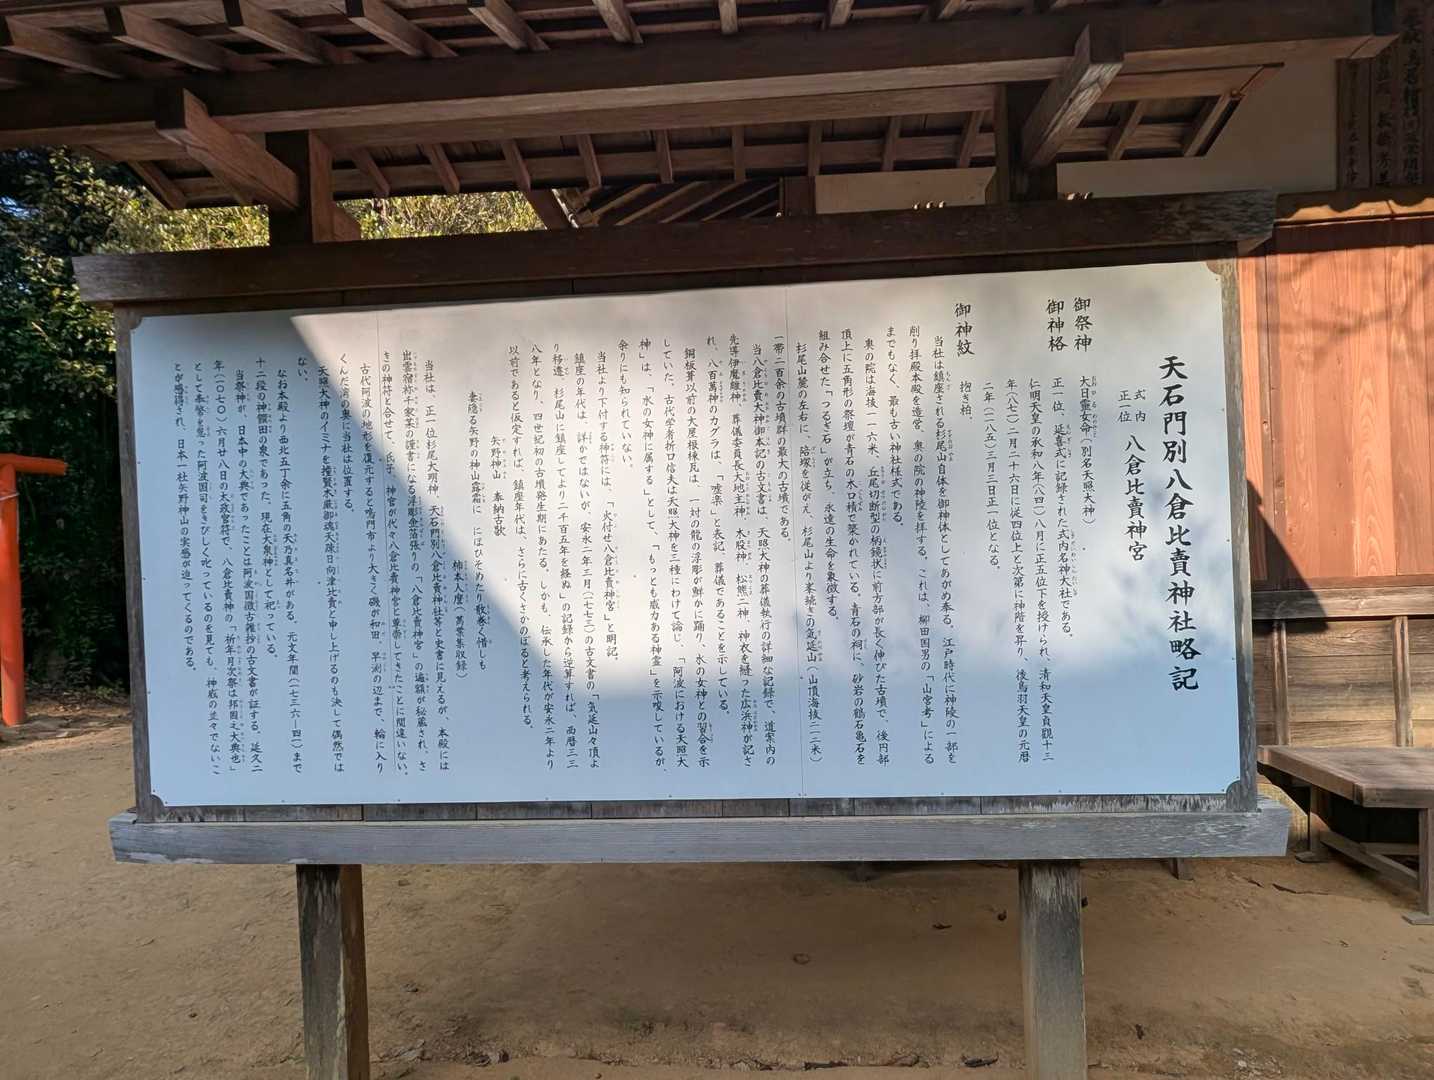 天石門別八倉比賣神社略記
式内
正一位
八倉比賣神宮
御祭神
大日靈女命(別名天照大神)
御神格
正一位、延喜式に記録された式内名神大社である。
仁明天皇の承和八年(八四一)八月に正五位下を授けられ、清和天皇貞觀十三
年(八七一)二月二十六日に従四位上と次第に神階を昇り、後鳥羽天皇の元暦
二年(一一八五)三月三日正一位となる。
御神紋
抱き柏。
当社は鎮座される杉尾山自体を御神体としてあがめ奉る。江戸時代に神陵の一部を
削り拝殿本殿を造営、奥の院の神陵を拝する。これは、柳田国男の「山宮考」による
までもなく、最も古い神社様式である。
奥の院は海抜一一六米、丘尾切断型の柄鏡状に前方部が長く伸びた古墳で、後円部
頂上に五角形の祭壇が青石の木口積で築かれている。青石の祠に、砂岩の鶴石亀石を
組み合せた「つるぎ石」が立ち、永遠の生命を象徴する。
杉尾山麓の左右に、陪塚を従がえ、杉尾山より峯続きの気延山(山頂海抜二一二米)
一帯二百余の古墳群の最大の古墳である。
当八倉比賣大神御本記の古文書は、天照大神の葬儀執行の詳細な記録で、道案内の
先導伊魔離神、葬儀委員長大地主神、木股神、松熊二神、神衣を縫った広浜神が記さ
れ、八百萬神のカグラは、「嘘楽」と表記、葬儀であることを示している。
銅板葺以前の大屋根棟瓦は、一対の龍の浮彫が鮮かに踊り、水の女神との習合を示
していた。古代学者折口信夫は天照大神を三種にわけて論じ、「阿波における天照大
神」は、「水の女神に属する」として、「もっとも威力ある神霊」を示唆しているが、
余りにも知られていない。
当社より下付する神符には、「火付せ八倉比賣神宮」と明記。
鎮座の年代は、詳かではないが、安永二年三月(一七七三)の古文書の「気延山々頂よ
り移遷、杉尾山に鎮座してより二千百五年を経ぬ」の記録から逆算すれば、西暦三三
八年となり、四世紀初の古墳発生期にあたる。しかも、伝承した年代が安永二年より
以前であると仮定すれば、鎮座年代は、さらに古くさかのぼると考えられる。
矢野神山 奉納古歌
妻隠る矢野の神山露霜に にほひそめたり散巻く惜しも
柿本人麿(萬葉集収録)
当社は、正一位杉尾大明神、天石門別八倉比賣神社等と史書に見えるが、本殿には
出雲宿祢千家某の謹書になる浮彫金箔張りの「八倉比賣神宮」の遍額が秘蔵され、さ
きの神符と合せて、氏子、神官が代々八倉比賣神宮と尊崇してきたことに間違いない。
古代阿波の地形を復元すると鳴門市より大きく磯が和田、早渕の辺まで、輪に入り
くんだ湾の奥に当社は位置する。
天照大神のイミナを撞賢木厳御魂天疎日向津比賣と申し上げるのも決して偶然では
ない。
なお本殿より西北五丁余に五角の天乃真名井がある。元文年間(一七三六—四一)まで
十二段の神饌田の泉であった。現在大泉神として祀っている。
当祭神が、日本中の大典であったことは阿波国徴古雑抄の古文書が証する。延久二
年(一〇七〇)六月廿八日の太政官符で、八倉比賣神の「祈年月次祭は邦国之大典也」
として奉幣を怠った阿波国司をきびしく叱っているのを見ても、神威の並々でないこ
とが感得され、日本一社矢野神山の実感が迫ってくるのである。